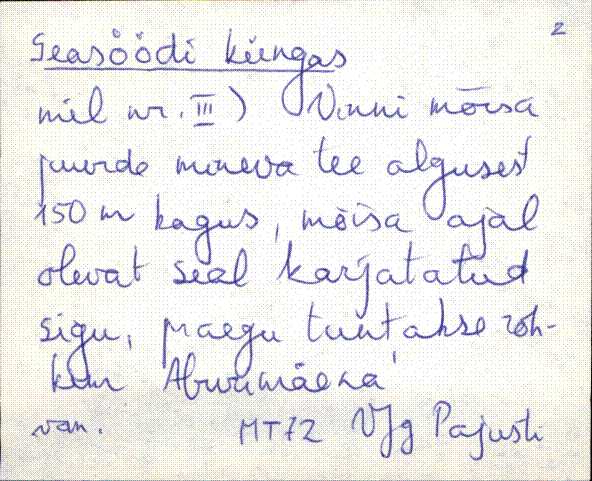 2
Seasöödi küngas
mil nr. III) Vinni mõisa
juurde mineva tee algusest
150 m kagus, mõisa ajal
olevat seal karjatatud
sigu, praegu tuntakse roh-
kem
van. MT72 VJg Pajusti